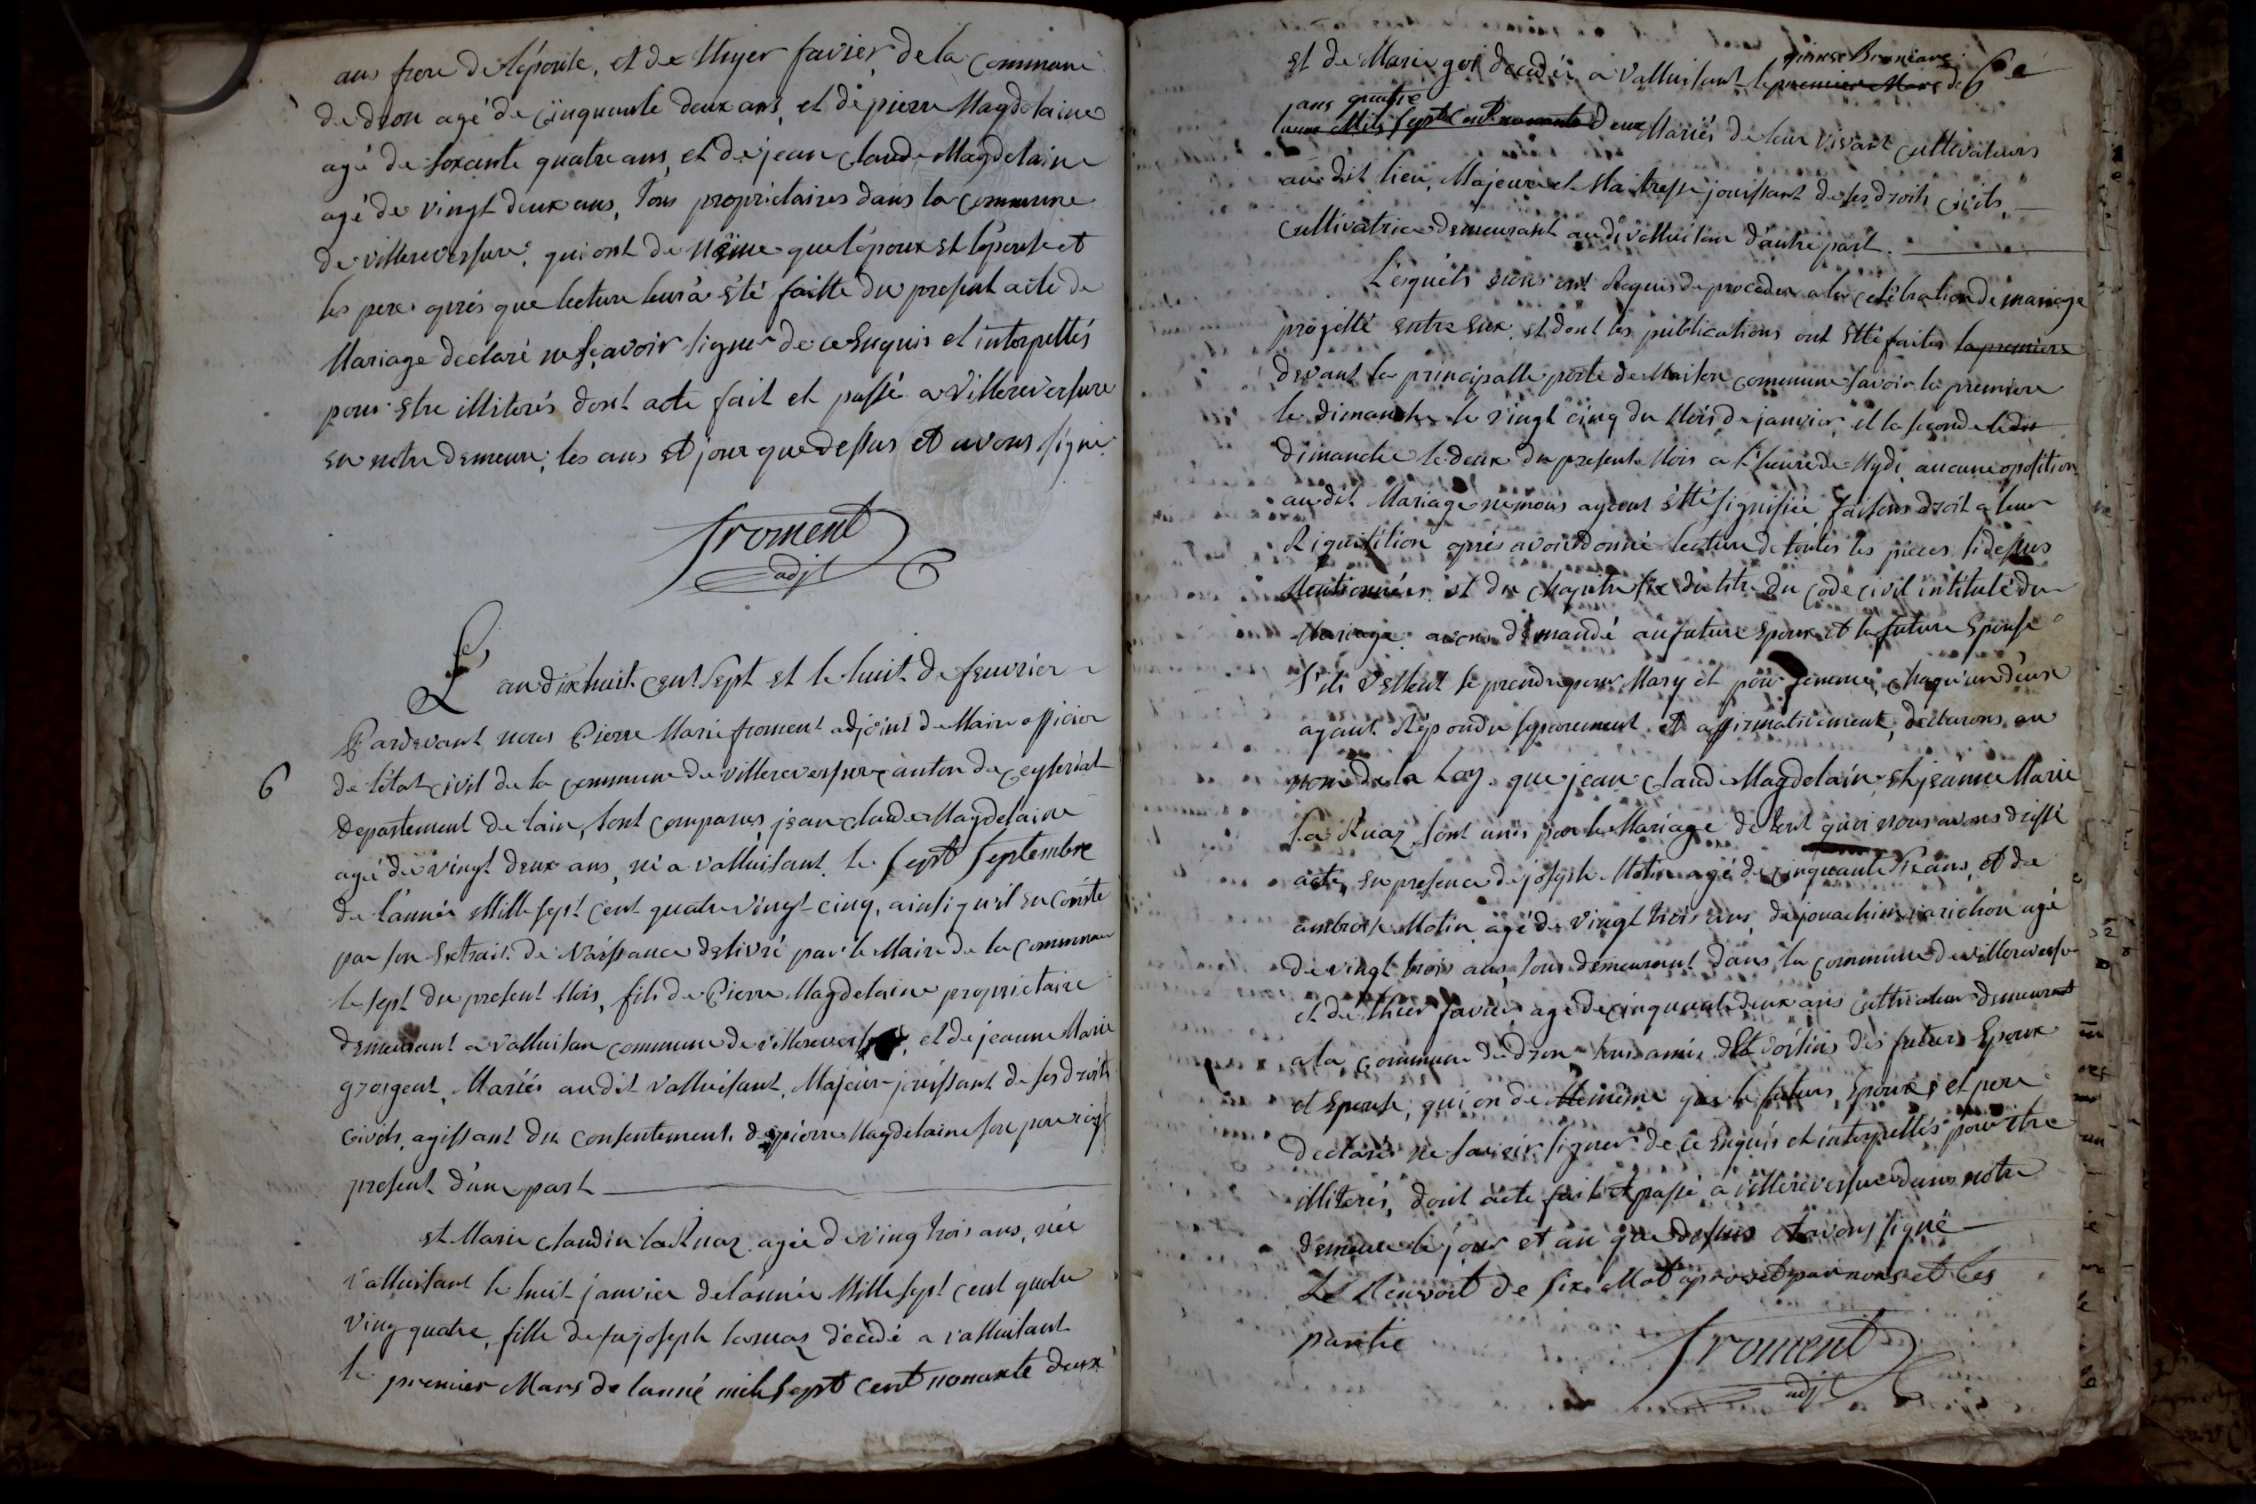 ans frere de l'épouse, et de thyer favier, de la commune
de dron agé de cinquante deux ans, et de pierre Magdelaine
agé de soxante quatre ans, et de jean claude Magdelaine
agé de vingt deux ans, tous proprietaires dans la commune
de villereversure, qui ont de même que l'époux et l'épouse et
les pere aprés que lecture leur a été faitte du present acte de
Mariage declaré ne sçavoir signer de ce Enquis et interpellés
pour être illiterés dont acte fait et passé a Villereversure
en notre demeure, les ans et jour que dessus et avons signé
froment
adjt
L'an dix huit cent sept et le huit de feuvrier
Pardevant nous Pierre Marie froment adjoint de Maire officier
6
de l'état civil de la commune de villereversure canton de ceyseriat
departement de lain, sont comparus jean claude Magdelaine
agé de vingt deux ans, né a valluisant le sept septembre
de l'année Mille sept cent quatre vingt-cinq, ainsi qu'il en conste
par son Extrait de Naissance delivré par le Maire de la commune
le sept du present Mois, fils de Pierre Magdelaine proprietaire
demeurant a valluisan commune de villereversure, et de jeanne Marie
grosgeut, Mariés audit valluisant, Majeur jouissant de ses droits
civils, agissant du consentement de pierre Magdelaine son pere icy
present d'une part
et Marie claudine la Ruaz agée de ving trois ans, née
valluisant le huit janvier de l'année Mille sept cent quatre
ving quatre, fille de fu joseph laruaz décedé a valluisant
le premier Mars de lanné mil sept cent nonante deux
quinze Brumaire
et de Marie goi decedée a valluisant le premier Mars de 6e
ans quatre
lanné Mils sept cent nonante deux Mariés de leur vivant cultivateurs
au dit lieu, Majeure et Maitresse jouissant de ses droits civils,
Cultivatrice demeurant audi valluisan d'autre part.
Lesquels nous ont Requis de proceder a la celébration de mariage
projetté entre eux et dont les publications ont été faites la premiere
devant la principalle porte de Maison commune savoir la premiere
le dimanche le vingt cinq du Mois de janvier, et la seconde le dit
dimanche le deux du present Mois a l'heure de Mydi, aucune oposition
au dit Mariage ne nous ayant été signifiée faisons droit a leur
Requisition aprés avoir donné lecture de toutes les pieces si dessus
Mentionnées et du chapitre six du titre du code civil intitulé du
Mariage avons demandé au future Epoux et la future Epouse
s'ils vellent se prendre pour Mary et pour femme, chaqu'un d'eux
ayant Répondu separement et affirmativement, declarons au
nom de la Loy que jean claude Magdelain et jeanne Marie
la Ruaz sont unis par le Mariage de tout quoi nous avons dressé
acte, en presence de joseph Motin agé de cinquante six ans, et de
ambroise Motin agé de vingt trois ans, de jouachim carichon agé
de vingt trois ans, tous demeurant dans la commune de villereversure
et de thier favier, agé de cinquante deux ans cultivateur demeurant
a la commune de dron tous amis et voisins des futurs Epoux
et Epouse, qui on de Memême que le futurs Epoux, et pere
declarés ne savoir signer de ce Enquis et interpellés pour être
illiterés, dont acte fait et passé a villereversure dans notre
demeure le jour et an que dessus et avons signé
Le Renvoit de six Mot aprouvé par nous et les
partie
froment
adjt